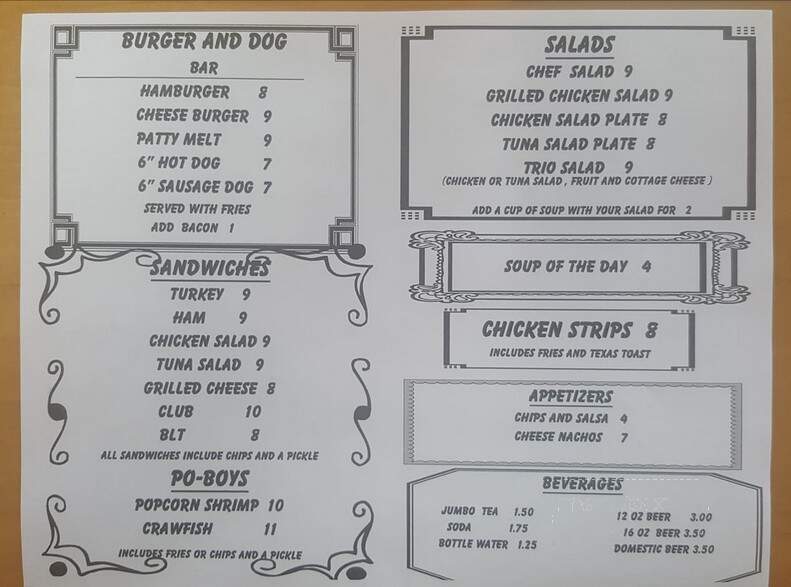 BURGER AND DOG
BAR
HAMBURGER 8
CHEESE BURGER 9
PATTY MELT 9
6" HOT DOG 7
6" SAUSAGE DOG 7
SERVED WITH FRIES
ADD BACON 1
SANDWICHES
TURKEY 9
HAM 9
CHICKEN SALAD 9
TUNA SALAD 9
GRILLED CHEESE 8
CLUB 10
BLT 8
ALL SANDWICHES INCLUDE CHIPS AND A PICKLE
PO-BOYS
POPCORN SHRIMP 10
CRAWFISH 11
INCLUDES FRIES OR CHIPS AND A PICKLE
SALADS
CHEF SALAD 9
GRILLED CHICKEN SALAD 9
CHICKEN SALAD PLATE 8
TUNA SALAD PLATE 8
TRIO SALAD 9
(CHICKEN OR TUNA SALAD , FRUIT AND COTTAGE CHEESE )
ADD A CUP OF SOUP WITH YOUR SALAD FOR 2
SOUP OF THE DAY 4
CHICKEN STRIPS 8
INCLUDES FRIES AND TEXAS TOAST
APPETIZERS
CHIPS AND SALSA 4
CHEESE NACHOS 7
BEVERAGES
JUMBO TEA 1.50
SODA 1.75
BOTTLE WATER 1.25
12 OZ BEER 3.00
16 OZ BEER 3.50
DOMESTIC BEER 3.50